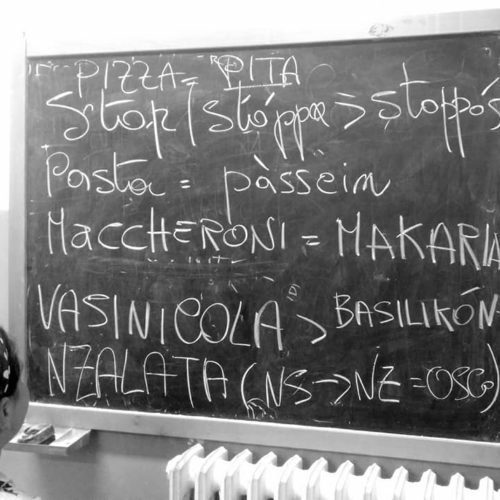 PIZZA = PITA
Stop / stóppa > stoppós
Pasta = pàssein
MaccHERONI = MAKARIA
VASINICOLA > BASILIKÓN
NZALATA (NS → NZ = OSC)